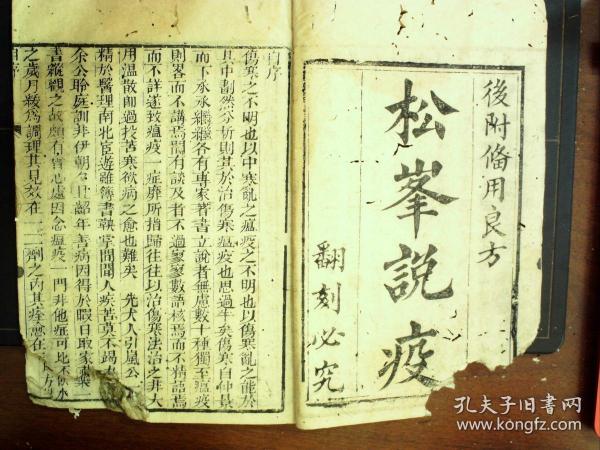 後附備用良方
松峯說疫
翻刻必究
自序
傷寒之不明也以中寒亂之瘟疫之不明也以傷寒亂之能於
其中劃然分析則其於治傷寒瘟疫也思過半矣傷寒自仲景
而下承承繼繼各有專家著書立說者無慮數十種獨至瘟疫
則畧而不講焉間有談及者不過寥寥數語核焉而不精語焉
而不詳遂致瘟疫一症靡所指歸往往以治傷寒法治之非大
用溫散即過投苦寒欲病之愈也難矣 先大人引嵐公
精於醫理南北宦遊雖簿書鞅掌間聞人疾苦莫不竭
余公聆庭訓非伊朝夕且齠年善病因得於暇日取家藏
書縱觀之故頗有會心處因念瘟疫一門非他症可比不
之歲月緩為調理其見效在一二劑之內其痊愈在
自序
孔夫子旧书网
www.kongfz.com